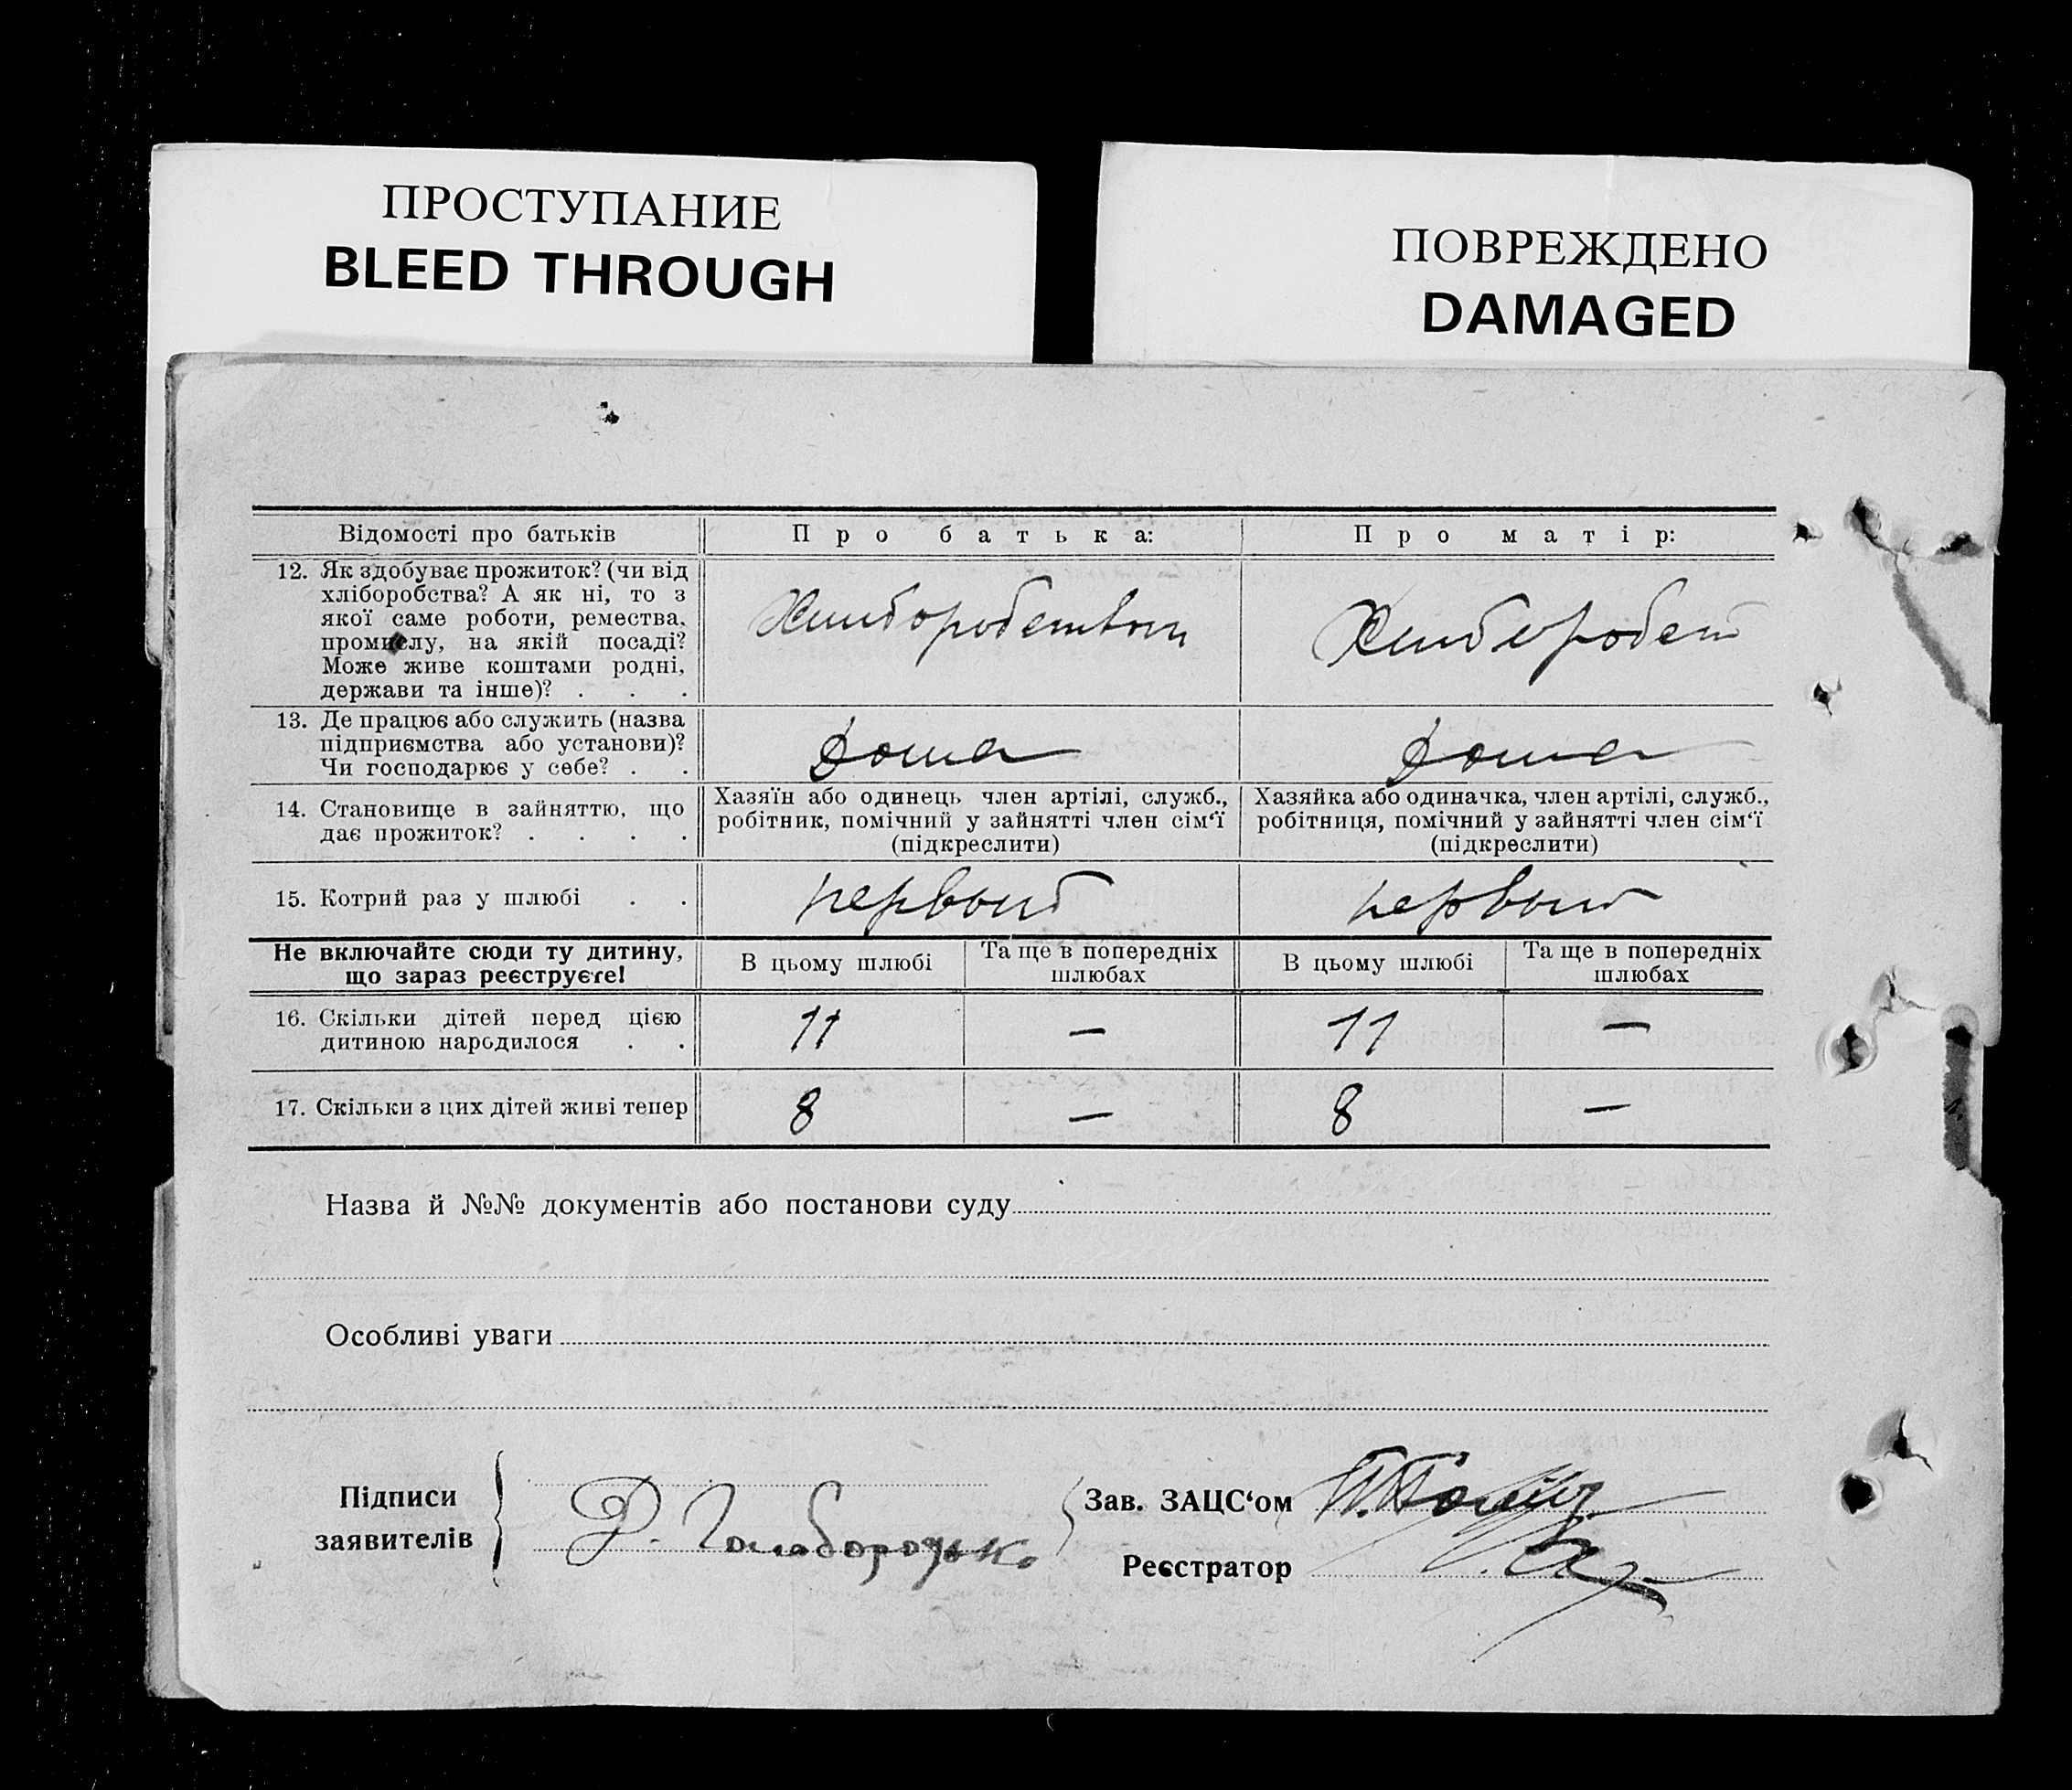 ПРОСТУПАНИЕ
BLEED THROUGH
ПОВРЕЖДЕНО
DAMAGED
Відомості про батьків
Про батька:
Про матір:
12. Як здобуває прожиток? (чи від
хліборобства? А як ні, то з
якої саме роботи, ремества,
промислу, на якій посаді?
Може живе коштами родні,
держави та інше)? . . .
Хлиборобством
Хлибороб
13. Де працює або служить (назва
підприємства або установи)?
Чи господарює у себе? . .
Дома
Дома
14. Становище в зайняттю, що
дає прожиток? . . . .
Хазяїн або одинець член артілі, служб.,
робітник, помічний у зайнятті член сім‘ї
(підкреслити)
Хазяйка або одиначка, член артілі, служб.,
робітниця, помічний у зайнятті член сім‘ї
(підкреслити)
15. Котрий раз у шлюбі . .
первый
первый
Не включайте сюди ту дитину,
що зараз реєструєте!
В цьому шлюбі
Та ще в попередніх
шлюбах
В цьому шлюбі
Та ще в попередніх
шлюбах
16. Скільки дітей перед цією
дитиною народилося . .
11
—
11
—
17. Скільки з цих дітей живі тепер
8
—
8
—
Назва й №№ документів або постанови суду
Особливі уваги
Підписи
заявителів
Голобородько
Зав. ЗАЦС‘ом
Реєстратор